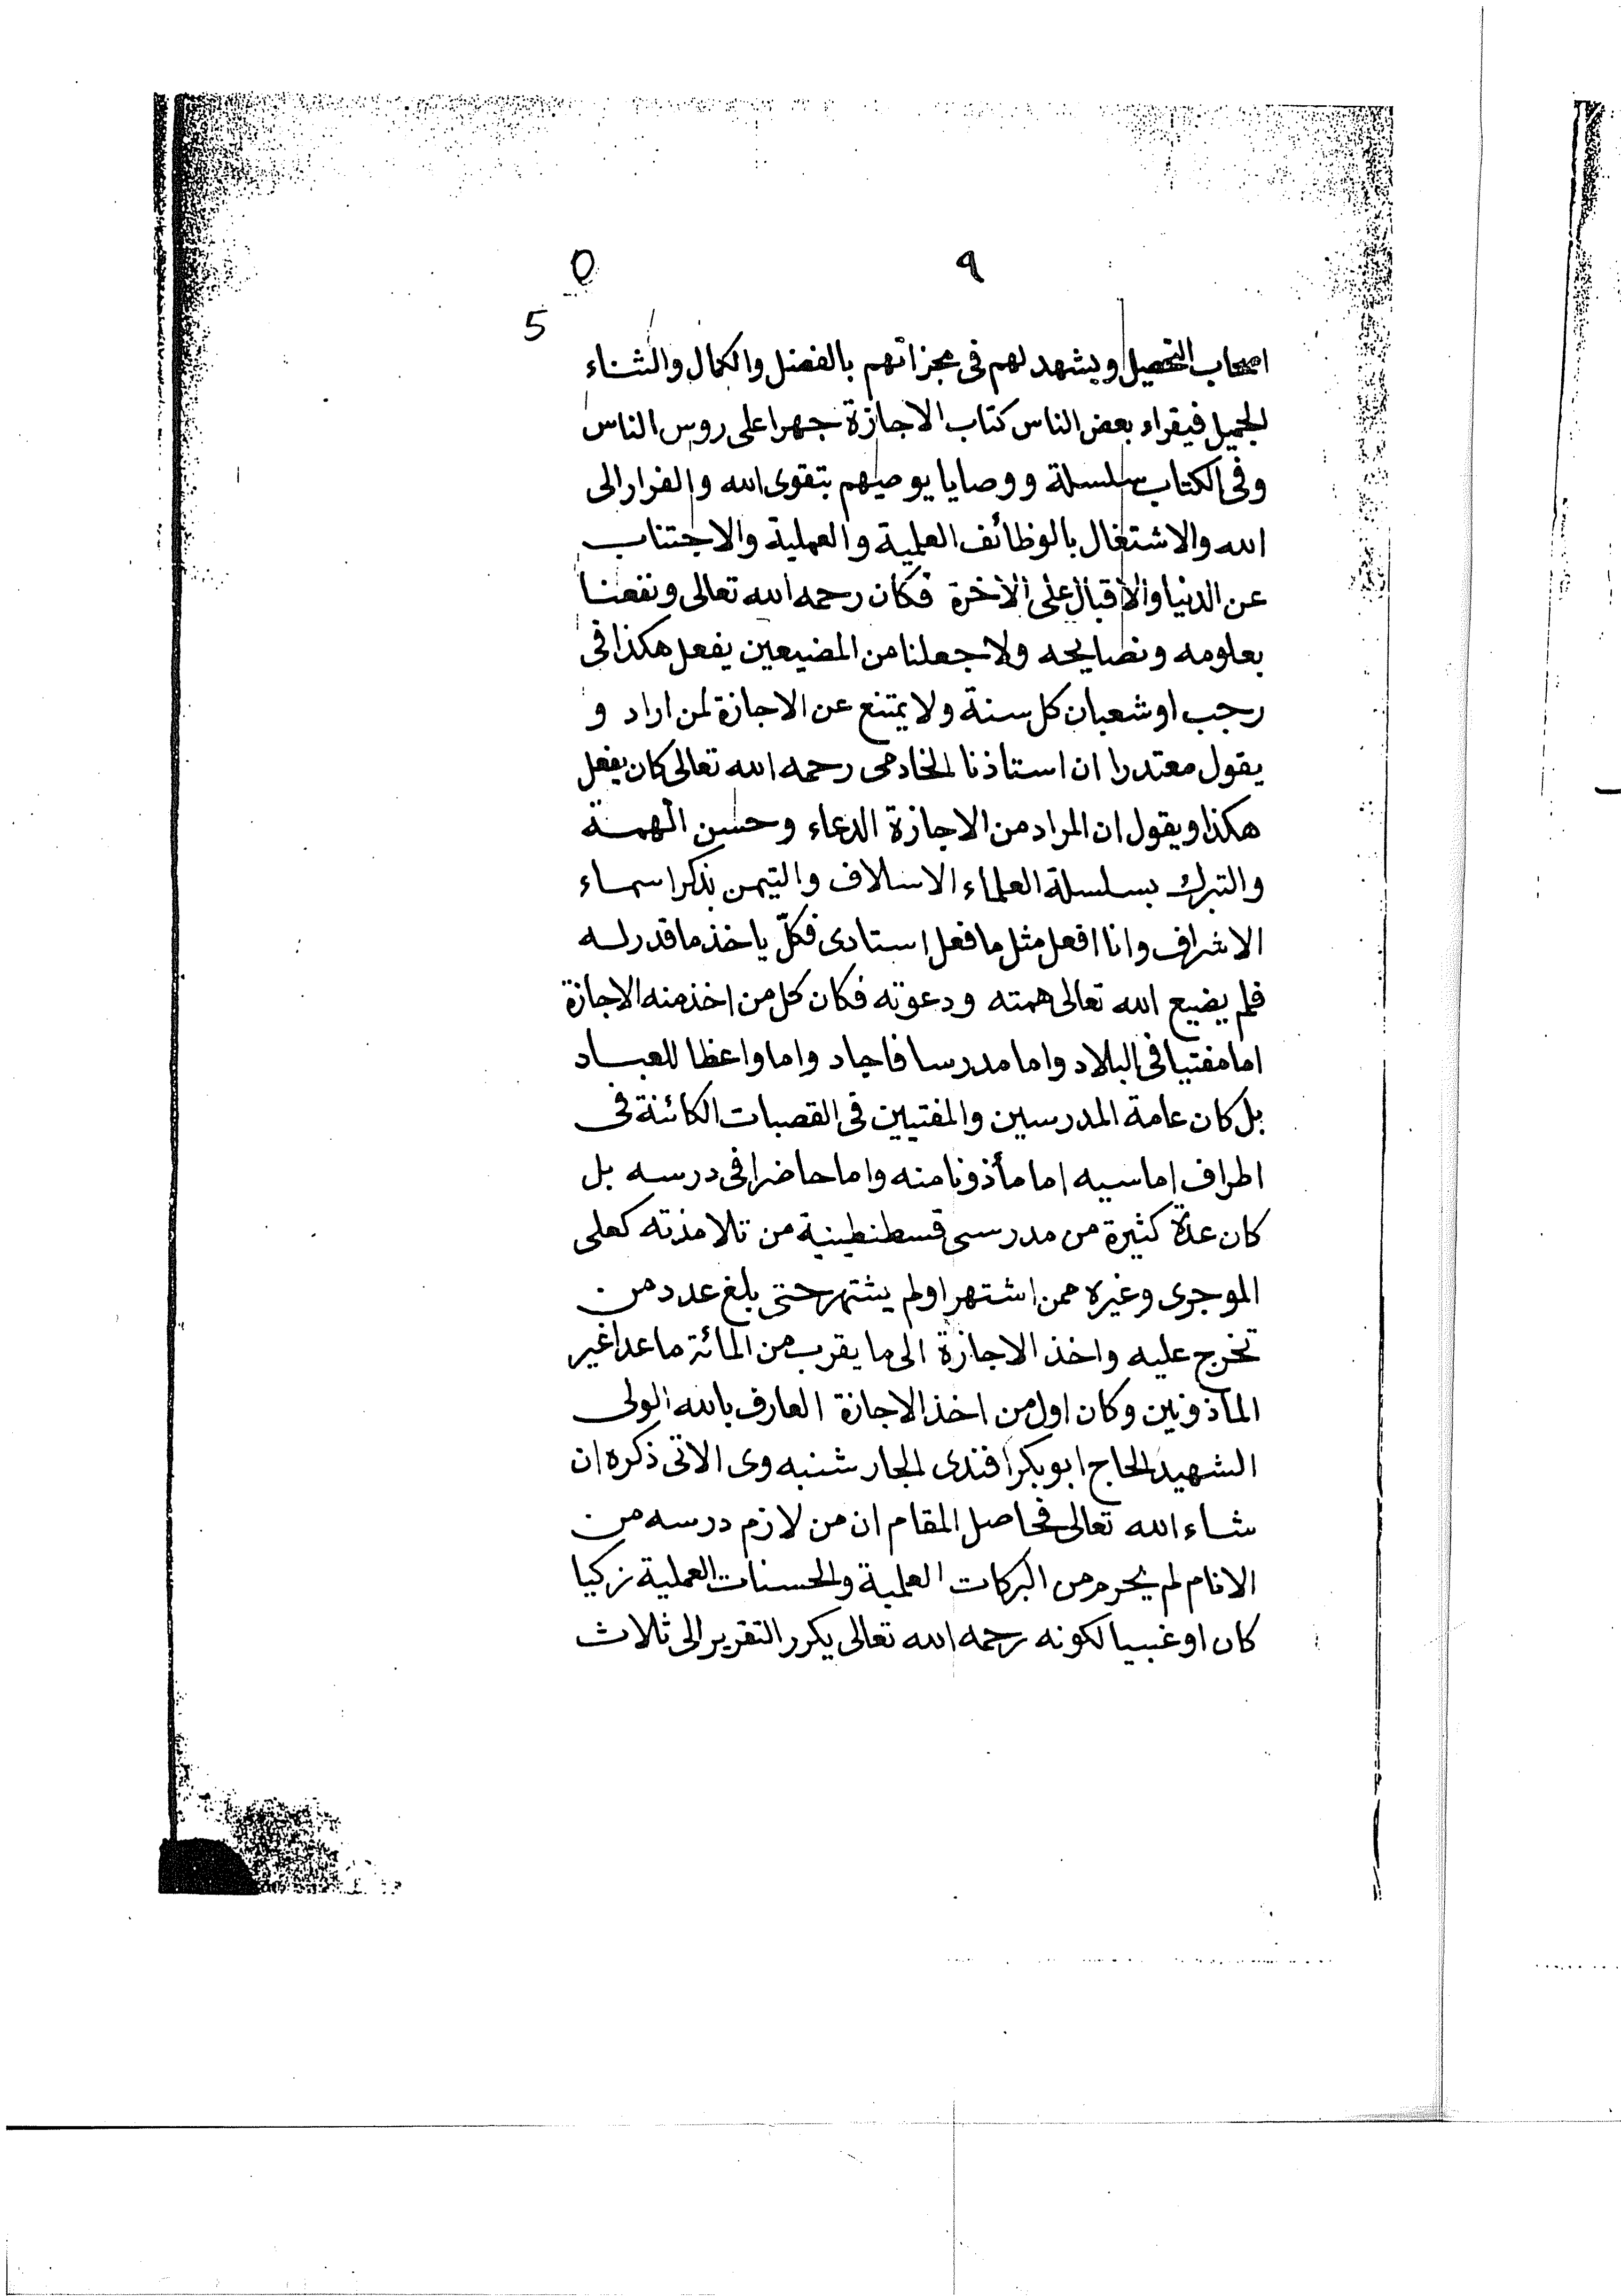 ٩
٥
5
اصحاب التحصيل ويشهد لهم فى مجزاتهم بالفضل والكمال والثناء
الجميل فيقراء بعض الناس كتاب الاجازة جهرا على روس الناس
وفى الكتاب سلسلة ووصايا يوصيهم بتقوى الله والفرار الى
الله والاشتغال بالوظائف العلمية والعملية والاجتناب
عن الدنيا والاقبال على الاخرة فكان رحمه الله تعالى ونفعنا
بعلومه ونصايحه ولا جعلنا من المضيعين يفعل هكذا فى
رجب او شعبان كل سنة ولا يمتنع عن الاجازة لمن اراد و
يقول معتدرا ان استاذنا الخادمى رحمه الله تعالى كان يفعل
هكذا ويقول ان المراد من الاجازة الدعاء وحسن الهمة
والتبرك بسلسلة العلماء الاسلاف والتيمن بذكر اسماء
الاشراف وانا افعل مثل ما فعل استادى فكلّ ياخذ ما قدر له
فلم يضيع الله تعالى همته ودعوته فكان كل من اخذ منه الاجازة
اما مفتيا فى البلاد واما مدرسا فاجاد واما واعظا للعباد
بل كان عامة المدرسين والمفتيين فى القصبات الكائنة فى
اطراف اماسيه اما مأذونا منه واما حاضرا فى درسه بل
كان عدة كثيرة من مدرسى قسطنطينية من تلامذته كعلى
الموجرى وغيره ممن اشتهر او لم يشتهر حتى بلغ عدد من
تخرج عليه واخذ الاجازة الى ما يقرب من المائة ما عدا غير
المأذونين وكان اول من اخذ الاجازة العارف بالله الولى
الشهيد الحاج ابو بكر افندى الجار شنبه وى الاتى ذكره ان
شاء الله تعالى فحاصل المقام ان من لازم درسه من
الانام لم يحرم من البركات العلمية والحسنات العملية زكيا
كان او غبيا لكونه رحمه الله تعالى يكرر التقرير الى ثلاث